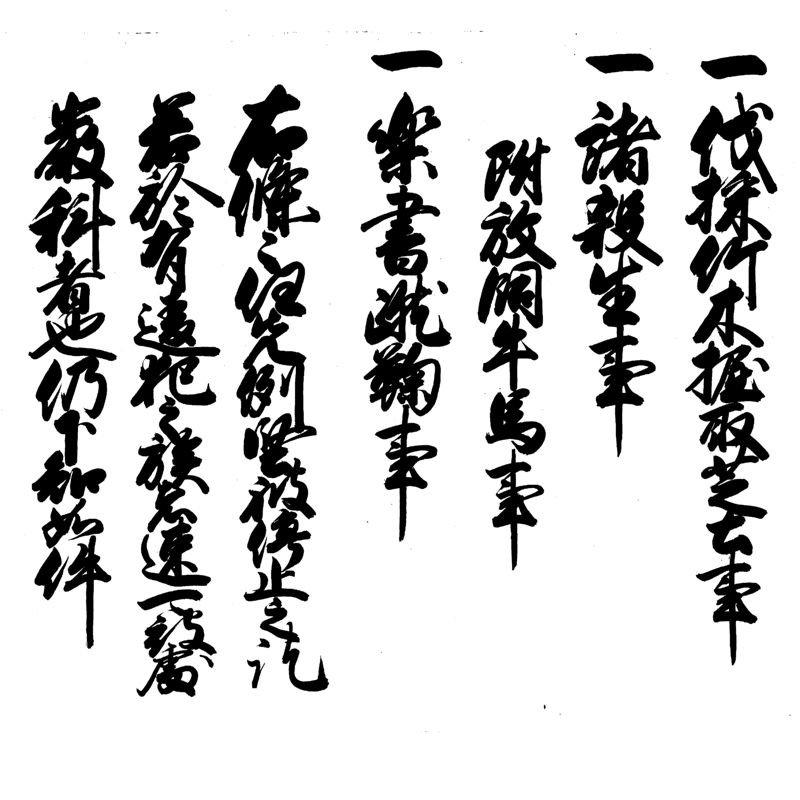 一伐採竹木掘取芝土事
一諸殺生事
附放飼牛馬事
一楽書蹴鞠事
右條々任先例堅被停止之訖
若於有違犯之族者速可被處
厳科者也仍下知如件